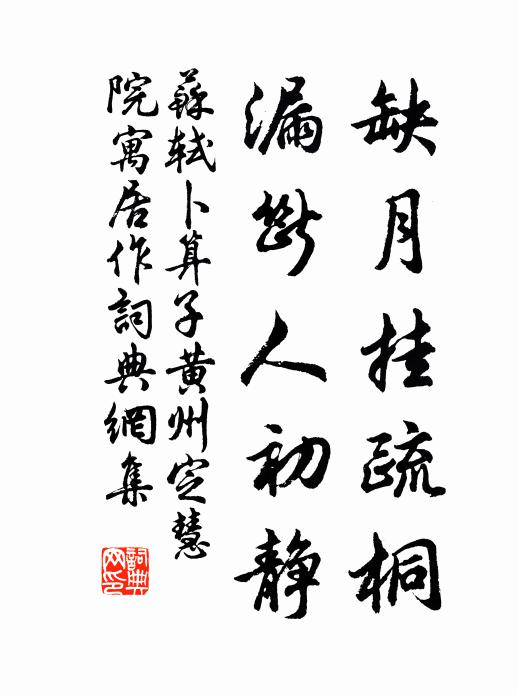 缺月挂疏桐
漏斷人初靜
蘇軾卜算子黃州定慧
院寓居作詞典網集
詞典网印